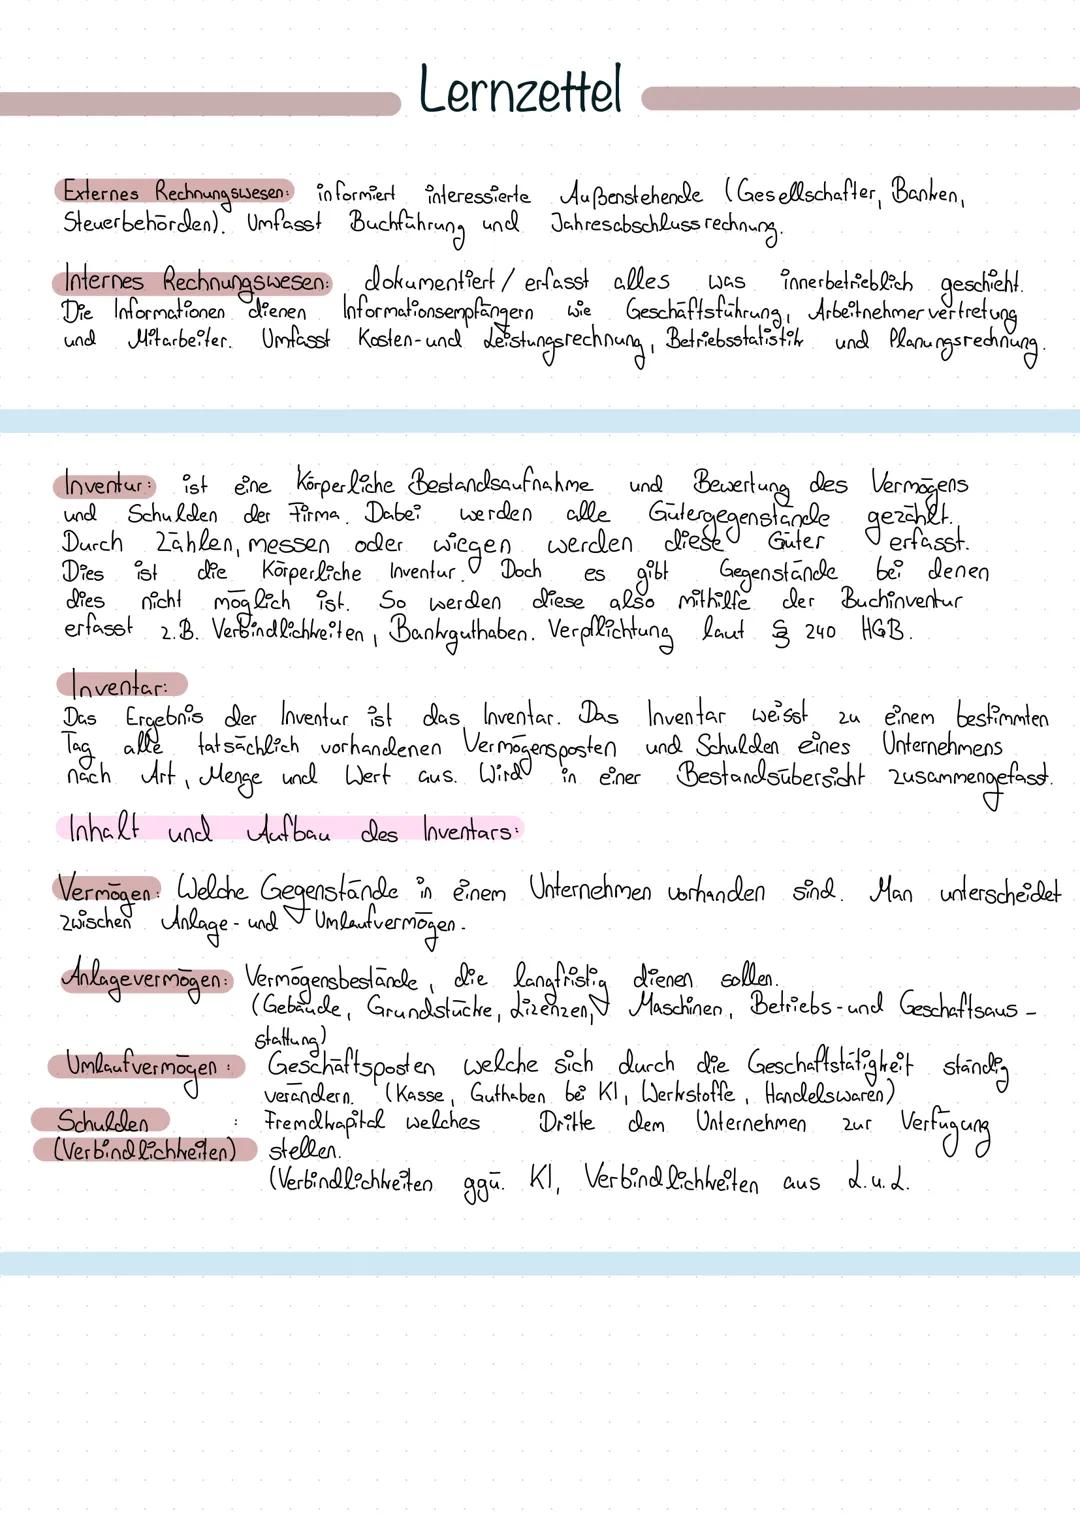 Lernzettel
Externes Rechnungswesen: informiert interessierte Außenstehende (Gesellschafter, Banken,
Steuerbehörden). Umfasst Buchführung und Jahresabschlussrechnung.
Internes Rechnungswesen: dokumentiert / erfasst alles was innerbetrieblich geschieht.
Die Informationen dienen Informationsempfängern wie Geschäftsführung, Arbeitnehmervertretung
und Mitarbeiter. Umfasst Kosten- und Leistungsrechnung, Betriebsstatistik und Planungsrechnung.
Inventur: ist eine Körperliche Bestandsaufnahme und Bewertung des Vermögens
und Schulden der Firma. Dabei werden alle Gütergegenstände gezählt.
Durch Zählen, messen oder wiegen werden diese Güter erfasst.
Dies ist die Körperliche Inventur. Doch es gibt Gegenstände bei denen
dies nicht möglich ist. So werden diese also mithilfe der Buchinventur
erfasst z.B. Verbindlichkeiten, Bankguthaben. Verpflichtung laut § 240 HGB.
Inventar:
Das Ergebnis der Inventur ist das Inventar. Das Inventar weisst zu einem bestimmten
Tag alle tatsächlich vorhandenen Vermögensposten und Schulden eines Unternehmens
nach Art, Menge und Wert aus. Wird in einer Bestandsübersicht zusammengefasst.
Inhalt und Aufbau des Inventars:
Vermögen: Welche Gegenstände in einem Unternehmen vorhanden sind. Man unterscheidet
zwischen Anlage- und Umlaufvermögen.
Anlagevermögen: Vermögensbestände, die langfristig dienen sollen.
(Gebäude, Grundstücke, Lizenzen, Maschinen, Betriebs- und Geschäftsaus-
stattung)
Umlaufvermögen: Geschäftsposten welche sich durch die Geschäftstätigkeit ständig
verändern. (Kasse, Guthaben bei KI, Werkstoffe, Handelswaren)
Schulden : Fremdkapital welches Dritte dem Unternehmen zur Verfügung
(Verbindlichkeiten) stellen.
(Verbindlichkeiten ggü. KI, Verbindlichkeiten aus L.u.L.